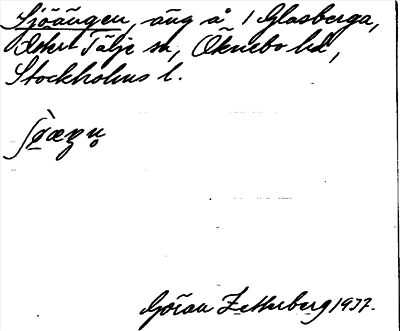 Sjöängen, äng å 1 Glasberga,
Östert Tälje sn, Öknebo hd,
Stockholms l.
Göran Zetterberg 1937.